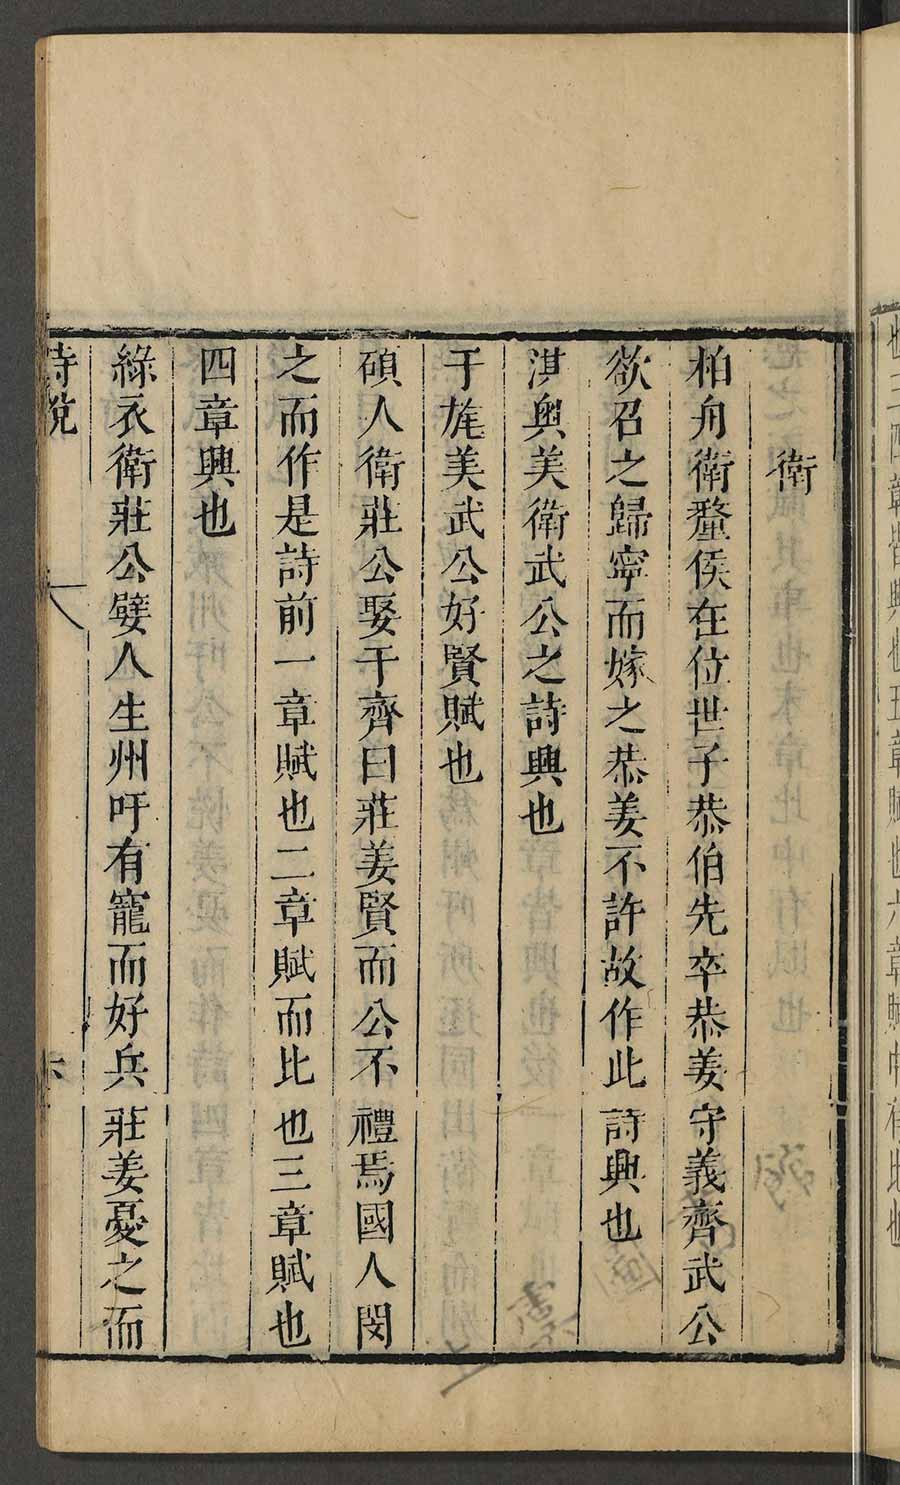 衛
柏舟衛釐侯在位世子恭伯先卒恭姜守義齊武公
欲召之歸寧而嫁之恭姜不許故作此詩興也
淇奧美衛武公之詩興也
干旄美武公好賢賦也
碩人衛莊公娶于齊曰莊姜賢而公不禮焉國人閔
之而作是詩前一章賦也二章賦而比也三章賦也
四章興也
綠衣衛莊公嬖人生州吁有寵而好兵莊姜憂之而
詩說